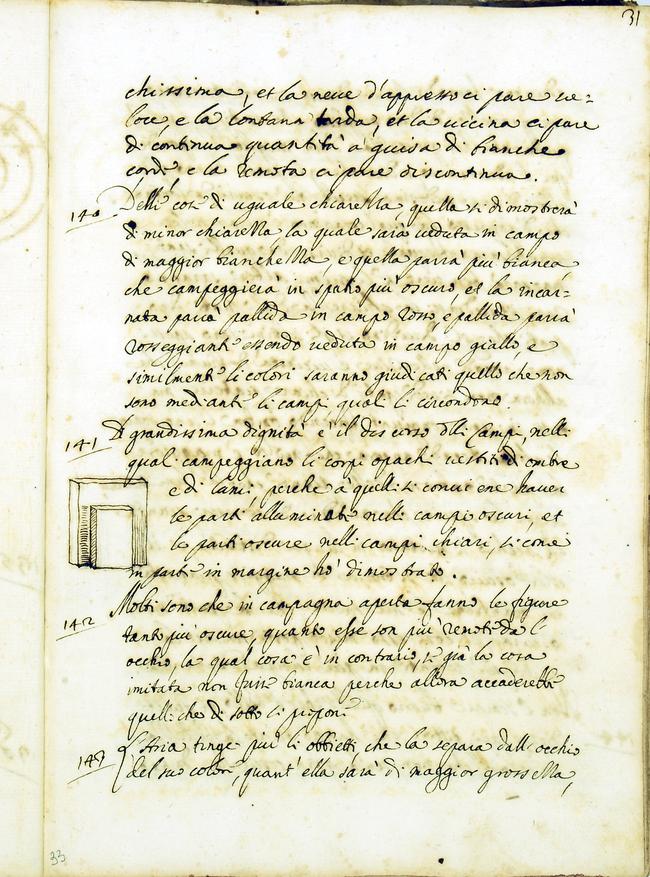 31
chissima, et la neve d'appresso ci pare ve=
loce, e la lontana tarda, et la vicina ci pare
di continua quantità à guisa di bianche
corde, e la remota ci pare discontinua.
140 Delle cose di uguale chiarezza, quella si dimostrerà
di minor chiarezza la quale sarà veduta in campo
di maggior bianchezza, e quella parrà più bianca
che campeggierà in spatio più oscuro, et la incar=
nata parrà pallida in campo rosso, e pallida parrà
rosseggiante essendo veduta in campo giallo, e
similmente li colori saranno giudicati quello che non
sono mediante li campi quali li circondono.
141 Di grandissima dignità è il discorso delli Campi, nelli
quali campeggiano li corpi opachi vestiti di ombre
e di lumi, perche à quelli si conviene haver
le parti alluminate nelli campi oscuri, et
le parti oscure nelli campi chiari, si come
in parte in margine hò dimostrato.
142 Molti sono che in campagna aperta fanno le figure
tanto più oscure, quanto esse son più remote dal
occhio, la qual cosa è in contrario, se già la cosa
imitata non fusse bianca perche allora accaderebbe
quello che di sotto si propone
143 L'Aria tinge più li obbietti, che la separa dall'occhio
del suo colore, quant'ella sarà di maggior grossezza,
33